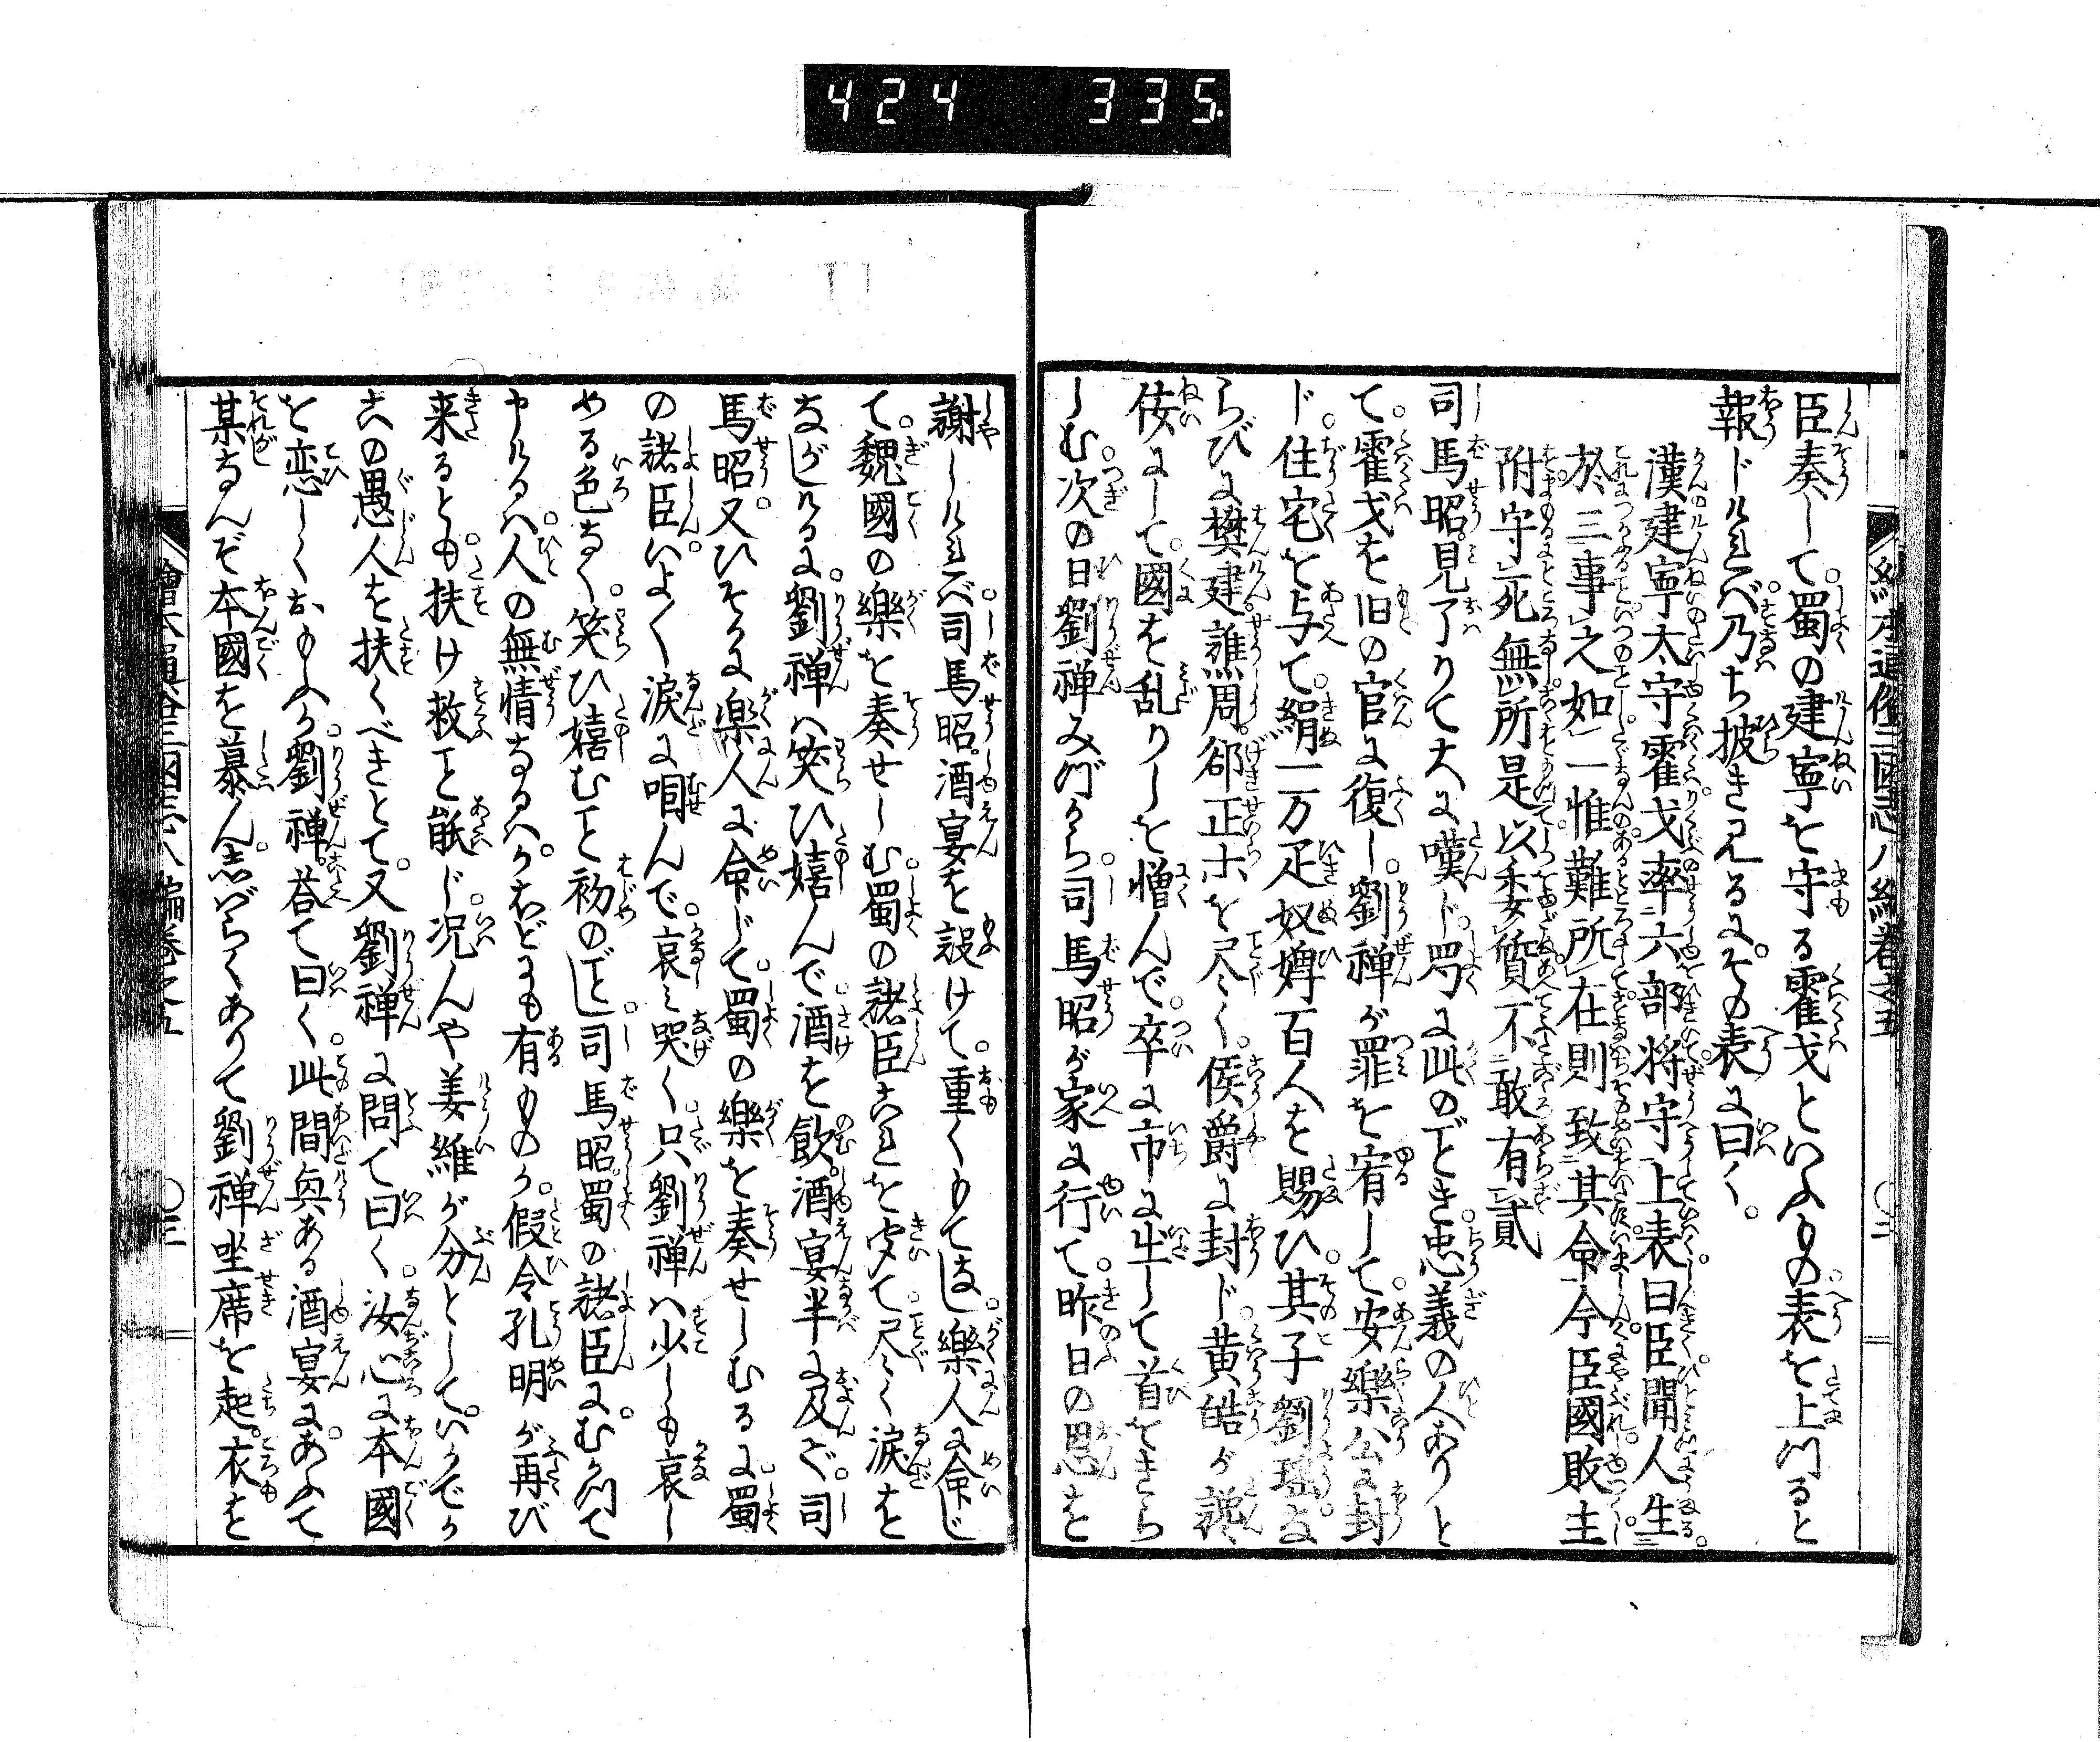 424 335
臣奏して。蜀の建寧を守る霍戈といふもの表を上つると
報じければ。乃ち披き見るに。その表に曰く。
漢建寧太守霍戈率六部将守上表曰臣聞人生
於三事之如一惟難所在則致其命今臣國敗主
附守死無所是以委質不敢有貳
司馬昭。見了りて大に嘆じ。蜀に此のごとき忠義の人ありと
て。霍戈を旧の官に復し。劉禅が罪を宥して。安樂公に封
じ。住宅を与て。絹一万疋奴婢百人を賜ひ。其子劉瑶な
らびに樊建。譙周。郤正等を尽く。侯爵に封じ。黄皓が讒
佞にして。國を乱りしを憎んで。卒に市に出して首をきら
しむ。次の日劉禅みづから。司馬昭が家に行て。昨日の恩を
謝しければ。司馬昭。酒宴を設けて。重くもてはし。樂人に命じ
て。魏國の樂を奏せしむ。蜀の諸臣これを聞て。尽く涙を
ながしけるに。劉禅は笑ひ嬉んで。酒を飲。酒宴半に及ぶ。司
馬昭。又ひそかに樂人に命じて。蜀の樂を奏せしむるに。蜀
の諸臣。いよ〱涙に咽んで。哀み哭く。只劉禅は少しも哀し
める色なく。笑ひ嬉むこと初のごとし。司馬昭。蜀の諸臣にむかつて
申けるは。人の無情なるは。かほどにも有ものか。假令孔明が再び
来るとも。扶け救こと能じ。况んや姜維が分として。いかでか
この愚人を扶くべきとて。又劉禅に問て曰く。汝心に本國
を恋しくおもふか。劉禅。荅て曰く。此間興ある酒宴にあふて
某なんぞ本國を慕ん。志ばらくありて劉禅坐席を起。衣を